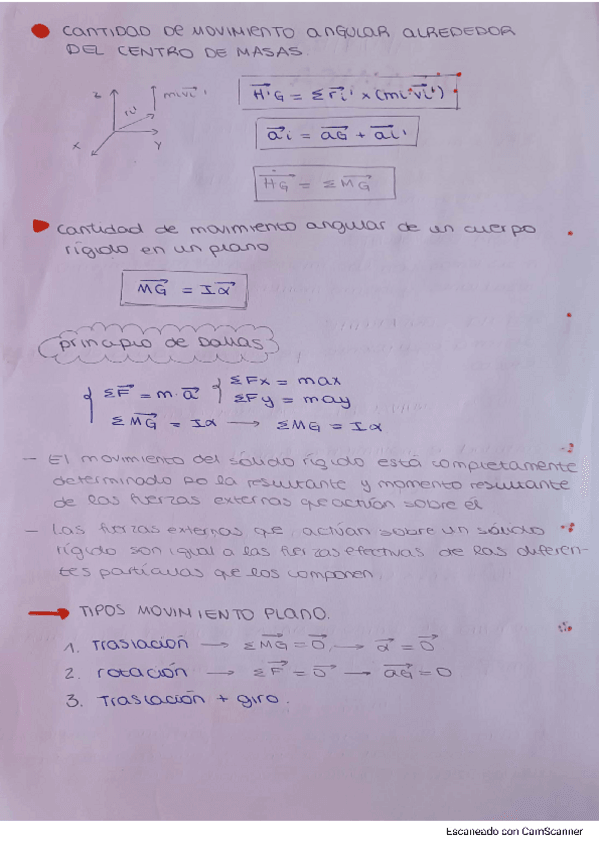 CANTIDAD DE MOVIMIENTO ANGULAR ALREDEDOR
DEL CENTRO DE MASAS.
z
mivi'
ri'
x
y
H'G = Σ ri' × (mi·vi')
ai = aG + ai'
ḢG = ΣMG
Cantidad de movimiento angular de un cuerpo
rígido en un plano
MG = Iα
Principio de Dallas
ΣF = m·a
ΣFx = max
ΣFy = may
ΣMG = Iα → ΣMG = Iα
- El movimiento del sólido rígido está completamente
determinado po la resultante y momento resultante
de las fuerzas externas que actúan sobre él
- Las fuerzas externas que actúan sobre un sólido
rígido son igual a las fuerzas efectivas de las diferen-
tes partículas que los componen,
→ TIPOS MOVIMIENTO PLANO.
1. Traslación → ΣMG = 0 → α = 0
2. rotación → ΣF = 0 → aG = 0
3. Traslación + giro.
Escaneado con CamScanner